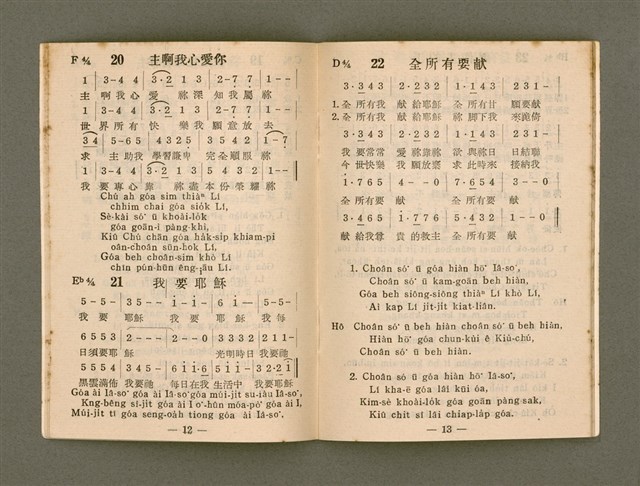 F 4/4 20 主啊我心愛你
1 | 3-4 4 | 3·2 1 3 | 2-7 7 | 1 - - |
主 啊我心 愛 祢深 知我屬 祢
1 | 3-4 4 | 3·2 1 3 | 2-7 7 | 1 - - |
世 界所有 快 樂我 願意放 去
3 4 | 5-6 5 | 4 3 2 5 | 3 5 4 2 | 1 - 7
求 主助我 學習謙卑 完全順服 祢
1 | 3-4 4 | 3·2 1 3 | 2-7 7 | 1 - - ‖
我 要專心靠 祢盡本 份榮耀祢
Chú ah góa sim thiàⁿ Lí
chhim chai góa siók Lí,
Sè-kài só͘ ū khoài-lo̍k
góa goān-ì pàng-khì,
Kiû Chú chān góa ha̍k-si̍p khiam-pi
oân-choân sūn-ho̍k Lí,
Góa beh choân-sim khò Lí
chīn pún-hūn êng-iāu Lí.
Eb 4/4 21 我要耶穌
5 - 5 - | 3 5 - - | 1 - 1 - | 6 1 - - | 5 - 5 - |
我 要 耶穌 我 要 耶穌 我 每
6 5 5 3 | 2 - - - | 2 - - 0 | 3 3 3 2 | 2 1 1 -
日須要耶 穌 光明時日 我要祂
5 5 5 4 | 3 4 5 - | 6 1 1·6 | 5 1 1 - | 3 2·2 1 ‖
黑雲滿佈 我要祂 每日在我 生活中 我要耶穌
Góa ài Iâ-so͘ góa ài Iâ-so͘ góa múi-ji̍t su-iàu Iâ-so͘,
Kng-bêng sî-ji̍t góa ài I o͘-hûn móa-pò͘ góa ài I,
Múi-ji̍t tī góa seng-oa̍h tiong góa ài Iâ-so͘,
— 12 —
D 4/4 22 全所有要献
3·3 4 3 | 2·2 3 2 | 1·1 4 3 | 2 3 1 - |
1. 全 所有我 献 給耶穌 全 所有甘 願要献
2. 全 所有我 献 給耶穌 祢 脚下我 來跪倚
3·3 4 3 | 2·2 3 2 | 1·1 4 3 | 2 3 1 - |
我 要常常 愛 祢靠祢 欲 與祢日 日結聯
今 世快樂 我 願放棄 求 此時來 接納我
1·7 6 5 | 4 - - 0 | 7·6 5 4 | 3 - - 0
全 所有要 献 全 所有要 献
3·4 6 5 | 1·7 7 6 | 5·4 3 2 | 1 - - 0 ‖
献 給我尊 貴 的教主 全 所有要 献
1. Choân só͘ ū góa hiàn hō͘ Iâ-so͘,
Choân só͘ ū kam-goān beh hiàn,
Góa beh siông-siông thiàⁿ Lí khò Lí,
Ài kap Lí ji̍t-ji̍t kiat-liân.
Hô Choân só͘ ū beh hiàn choân só͘ ū beh hiàn,
Hiàn hō͘ góa chun-kùi ê Kiù-chú,
Choân só͘ ū beh hiàn.
2. Choân só͘ ū góa hiàn hō͘ Iâ-so͘,
Lí kha-ē góa lâi kūi óa,
Kim-sè khoài-lo̍k góa goān pàng sak,
Kiû chit sî lâi chiap-la̍p góa.
— 13 —